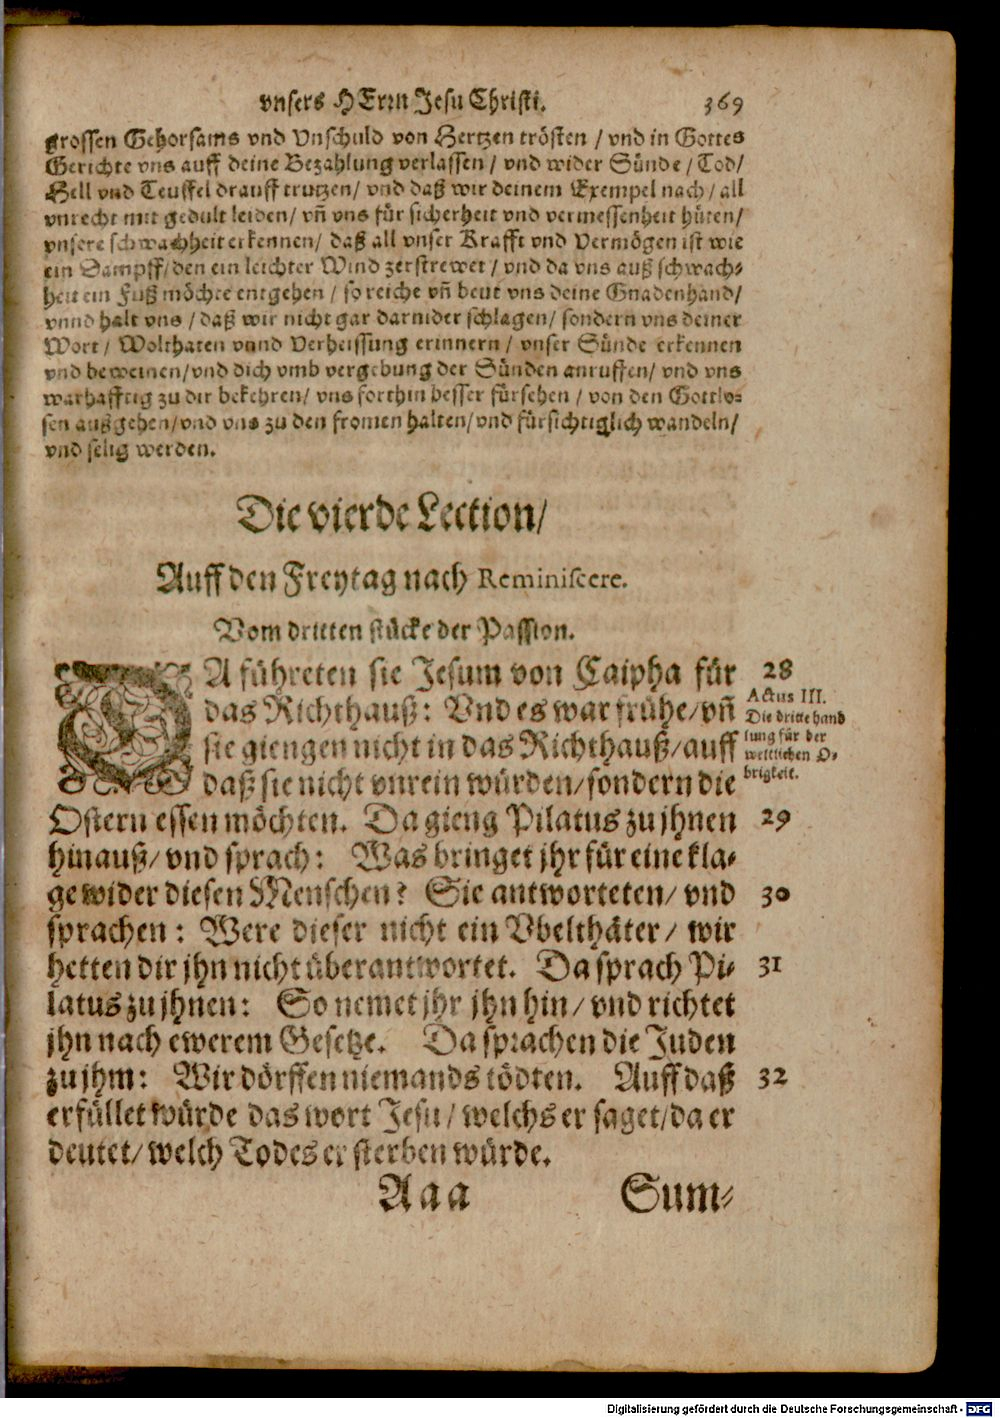 vnsers HErrn Jesu Christi. 369
grossen Gehorsams vnd Vnschuld von Hertzen trösten / vnd in Gottes
Gerichte vns auff deine Bezahlung verlassen / vnd wider Sünde / Tod /
Hell vnd Teuffel drauff trutzen / vnd daß wir deinem Exempel nach / all
vnrecht mit gedult leiden / vñ vns für sicherheit vnd vermessenheit hüten /
vnsere schwachheit erkennen / daß all vnser Krafft vnd Vermögen ist wie
ein Dampff / den ein leichter Wind zerstrewet / vnd da vns auß schwach-
heit ein Fuß möchte entgehen / so reiche vñ beut vns deine Gnadenhand /
vnnd halt vns / daß wir nicht gar darnider schlagen / sondern vns deiner
Wort / Wolthaten vnnd Verheissung erinnern / vnser Sünde erkennen
vnd beweinen / vnd dich vmb vergebung der Sünden anruffen / vnd vns
warhafftig zu dir bekehren / vns forthin besser fürsehen / von den Gottlo-
sen außgehen / vnd vns zu den fromen halten / vnd fürsichtiglich wandeln /
vnd selig werden.
Die vierde Lection /
Auff den Freytag nach Reminiscere.
Vom dritten stücke der Passion.
DA führeten sie Jesum von Caipha für 28
das Richthauß: Vnd es war frühe / vñ
sie giengen nicht in das Richthauß / auff
daß sie nicht vnrein würden / sondern die
Actus III.
Die dritte hand
lung für der
weltlichen O-
brigkeit.
Ostern essen möchten. Da gieng Pilatus zu jhnen 29
hinauß / vnd sprach: Was bringet jhr für eine kla-
ge wider diesen Menschen? Sie antworteten / vnd 30
sprachen: Were dieser nicht ein Vbelthäter / wir
hetten dir jhn nicht überantwortet. Da sprach Pi- 31
latus zu jhnen: So nemet jhr jhn hin / vnd richtet
jhn nach ewerem Gesetze. Da sprachen die Juden
zu jhm: Wir dörffen niemands tödten. Auff daß 32
erfüllet würde das wort Jesu / welchs er saget / da er
deutet / welch Todes er sterben würde.
Aaa Sum-
Digitalisierung gefördert durch die Deutsche Forschungsgemeinschaft - DFG